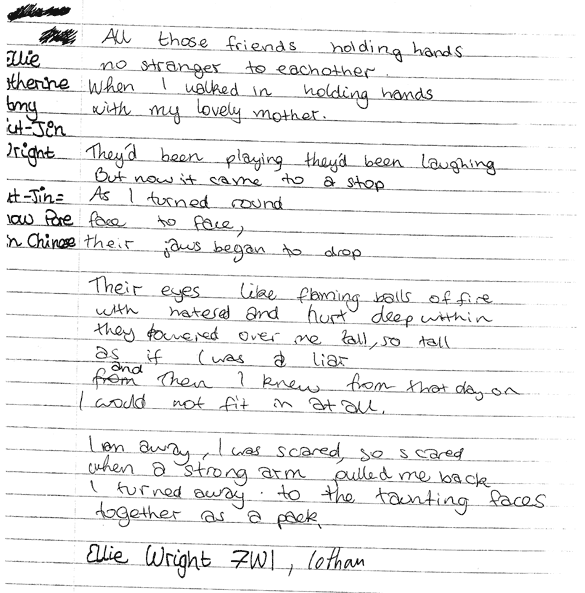 All those friends holding hands
Ellie no stranger to eachother.
therine When I walked in holding hands
with my lovely mother.
-Jin
right They'd been playing they'd been laughing
But now it came to a stop
-Jin= As I turned round
face to face,
n Chinese their jaws began to drop
Their eyes like flaming balls of fire
with hatered and hurt deep within
they towered over me tall, so tall
as if I was a liar
and
from Then I knew from that day on
I would not fit in at all.
I ran away, I was scared, so scared
when a strong arm pulled me back
I turned away to the taunting faces
together as a pack.
Ellie Wright 7W1, lothan